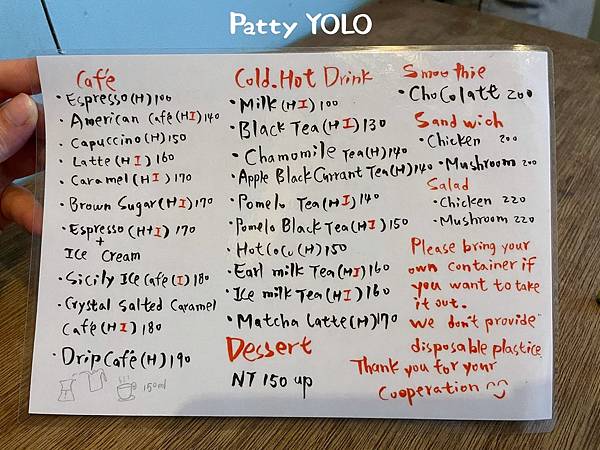 Patty YOLO
Café
·Espresso(H)100
·American Café(HI)140
·Capuccino(H)150
·Latte(HI) 160
·Caramel(HI) 170
·Brown Sugar(HI)170
·Espresso(H+I) 170
+
Ice Cream
·Sicily Ice Café(I)180
·Crystal Salted Caramel
Café(HI) 180
·Drip Café(H) 190
150ml
Cold.Hot Drink
·Milk(HI) 100
·Black Tea(HI)130
·Chamomile Tea(H)140
·Apple Black Currant Tea(H)140
·Pomelo Tea(HI)140
·Pomelo Black Tea(HI)150
·Hot CoCo(H)150
·Earl milk Tea(HI)160
·Ice milk Tea(HI)160
·Matcha Latte(H)170
Dessert
NT 150 up
Smoothie
·ChoColate 200
Sandwich
·Chicken 200
·Mushroom 200
Salad
·Chicken 220
·Mushroom 220
Please bring your
own container if
you want to take
it out.
We don't provide
disposable plastice
Thank you for your
Cooperation